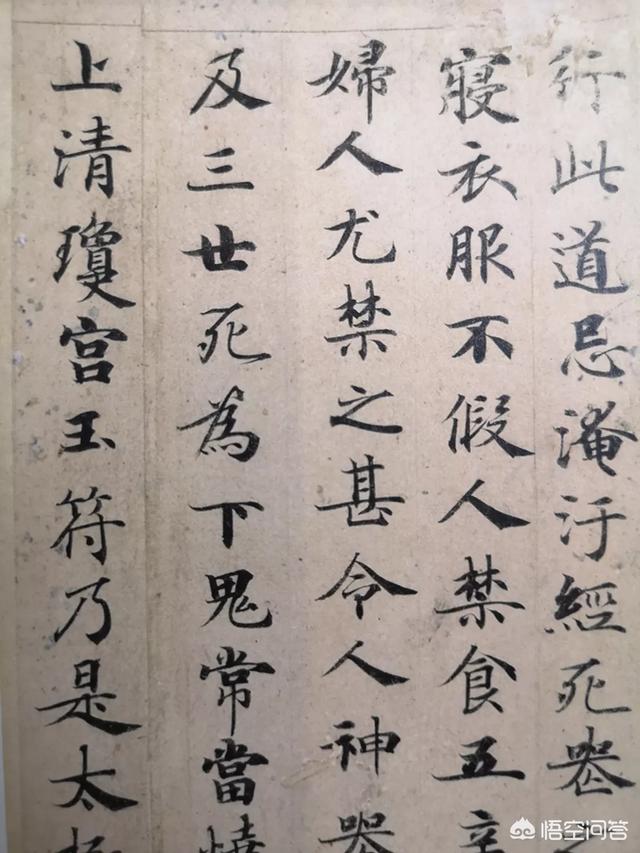 行此道忌淹汙經死喪
寢衣服不假人禁食五辛
婦人尤禁之甚令人神喪
及三世死為下鬼常當燒
上清瓊宮玉符乃是太極
悟空问答